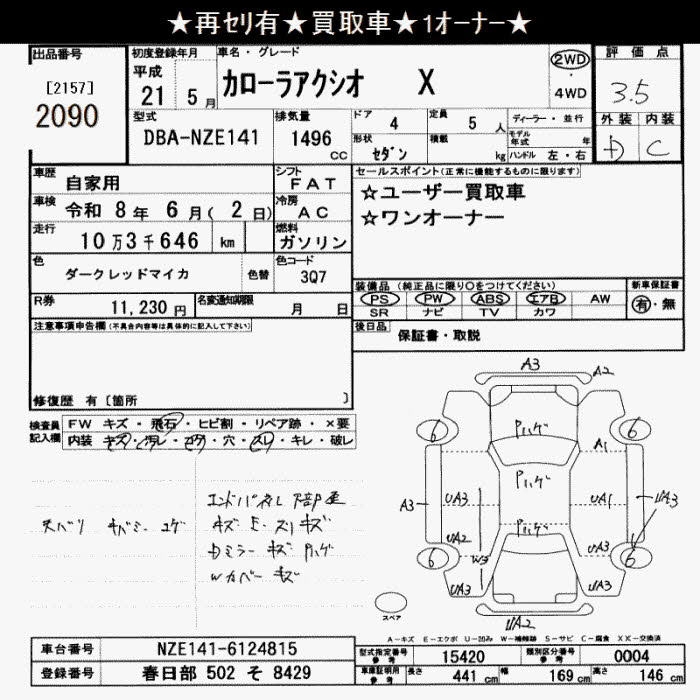 ★再セリ有★買取車★1オーナー★
出品番号
[2157]
2090
初度登録年月
平成
21 5月
車名・グレード
カローラアクシオ X
2WD
・
4WD
評価点
3.5
外装 内装
D C
型式
DBA-NZE141
排気量
1496
CC
ドア 4
形状 セダン
定員 5 人
積載 kg
ディーラー・並行
モデル年式 年
ハンドル 左・右
車歴 自家用
車検 令和 8年 6月( 2日)
走行 10万3千646 km
色 ダークレッドマイカ 色替
R券 11,230円
名変通知期限 月 日
シフト FAT
冷房 AC
燃料 ガソリン
色コード 3Q7
セールスポイント(正常に機能するものに限ります)
☆ユーザー買取車
☆ワンオーナー
装備品 (純正品に限り○をつけてください)
PS PW ABS エアB AW
SR ナビ TV カワ
新車保証書
有・無
後日品 保証書・取説
注意事項申告欄(不具合内容等は具体的に記入して下さい)
修復歴 有〔箇所 〕
検査員記入欄
FW キズ・飛石・ヒビ割・リペア跡・×要
内装 キズ・汚レ・コゲ・穴・スレ・キレ・破レ
キズ
Wカバー キズ
A3
A2
6 6
Pハゲ
A1
Pハゲ
A3 UA3 UA1 UA3
UA2 Pハゲ UA3
6 W3 6
UA3 UA3
スペア
UA2
A-キズ E-エクボ U-凹み W-補修跡 S-サビ C-腐食 XX-交換済
車台番号 NZE141-6124815
登録番号 春日部 502 そ 8429
型式指定番号 参考 15420
類別区分番号 参考 0004
車庫証明用 参考 長さ 441 cm 幅 169 cm 高さ 146 cm